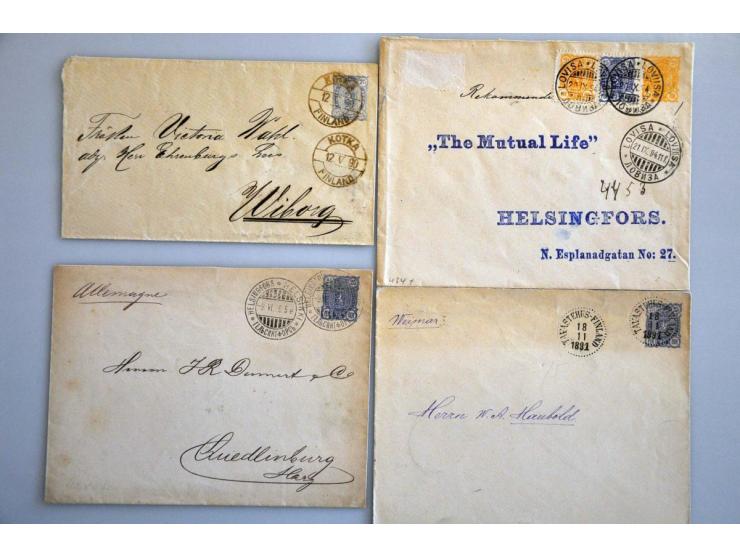 KOTKA
12.V.90
FINLAND
Fröken Victoria Wahl
adr. Herr Ehrenburgs hus
Wiborg
Rekommenderas
LOVISA * LOVIISA *
21.IX.94
ЛОВИЗА
„The Mutual Life"
4453
HELSINGFORS.
N. Esplanadgatan No: 27.
Allemagne
HELSINGFORS
ГЕЛЬСИНГФОРСЪ
Herren J. R. Dummert & Co
Quedlinburg
Harz
Weimar.
TAVASTEHUS-FINLAND
18
11
1891
TAVASTEHUS
18
11
1891
Herrn W. A. Haubold